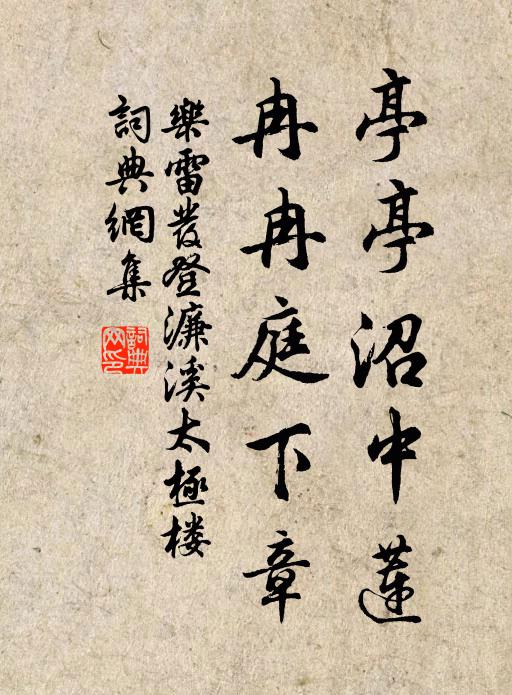 亭亭沼中蓮
冉冉庭下章
樂雷發登濂溪太極楼
詞典網集
詞典網印